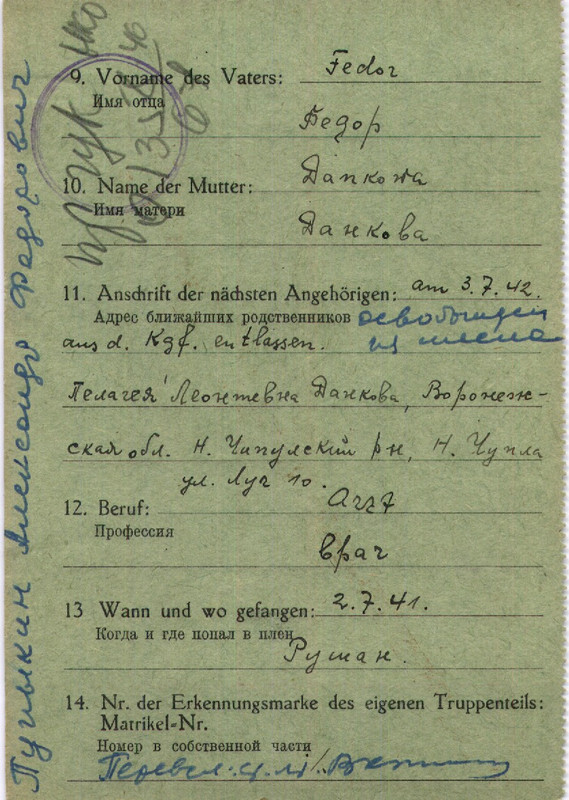 9. Vorname des Vaters: Fedor
Имя отца
Федор
10. Name der Mutter: Данкова
Имя матери
Данкова
11. Anschrift der nächsten Angehörigen: am 3.7.42.
Адрес ближайших родственников освобожден
aus d. Kgf. entlassen. из плена
Пелагея Леонтевна Данкова, Воронеж-
ская обл. Н. Чипулский рн, Н. Чупла
ул. Луч 10.
12. Beruf: Arzt
Профессия
врач
13 Wann und wo gefangen: 2.7.41.
Когда и где попал в плен
Руман.
14. Nr. der Erkennungsmarke des eigenen Truppenteils:
Matrikel-Nr.
Номер в собственной части
Перевел
Александр Федорович